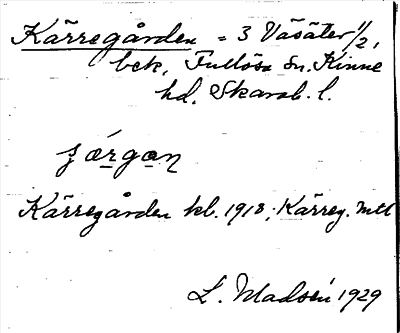 Kärregården = 3 Väsäter 1/2,
bek, Fullösa sn. Kinne
hd. Skarab. l.
Kärregården kl. 1913; Kärreg. mtl
L. Madsén 1929